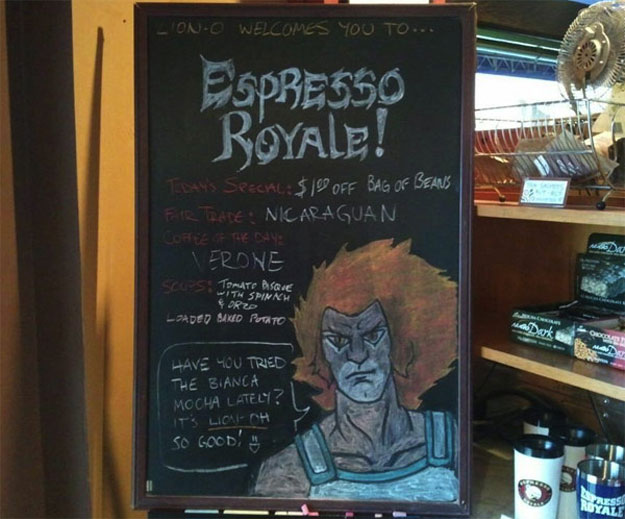 LION-O WELCOMES YOU TO...
ESPRESSO
ROYALE!
TODAY'S SPECIAL: $1.00 OFF BAG OF BEANS
FAIR TRADE: NICARAGUAN
COFFEE OF THE DAY:
VERONE
SOUPS: TOMATO BISQUE
WITH SPINACH
& ORZO
LOADED BAKED POTATO
HAVE YOU TRIED
THE BIANCA
MOCHA LATELY?
IT'S LION-OH
SO GOOD!
Dark
Dark
ESPRESSO
ROYALE